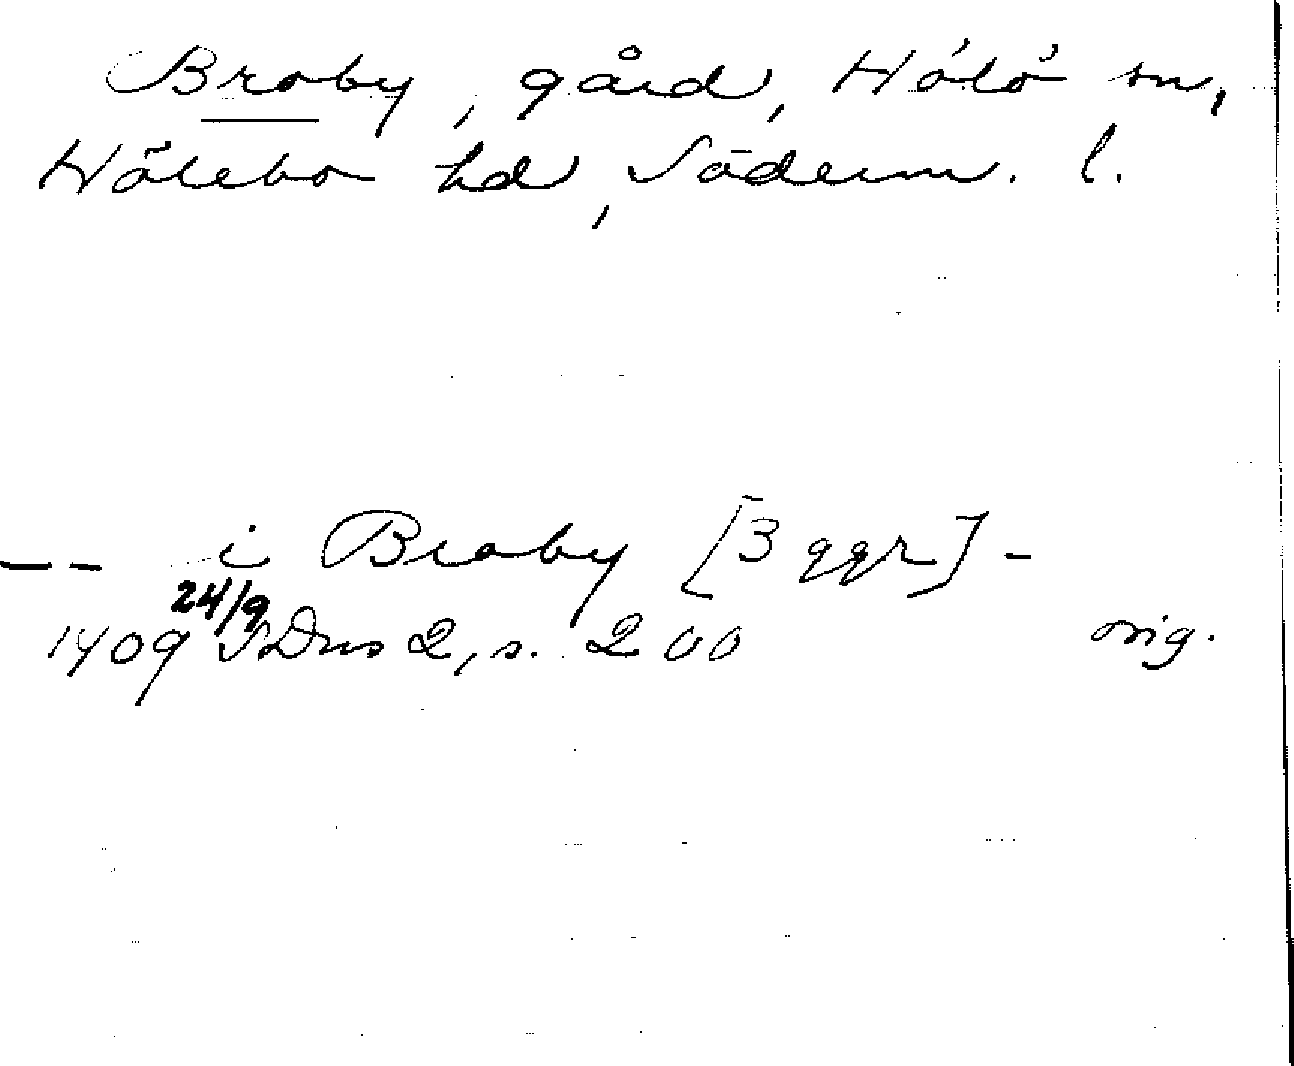 Broby, gård, Hölö sn,
Hölebo hd, Söderm. l.
-- i Broby [3 ggr] -
24/9
1409 SDns 2, s. 200 orig.